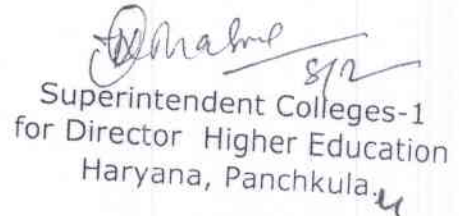 8/2
Superintendent Colleges-1
for Director Higher Education
Haryana, Panchkula.